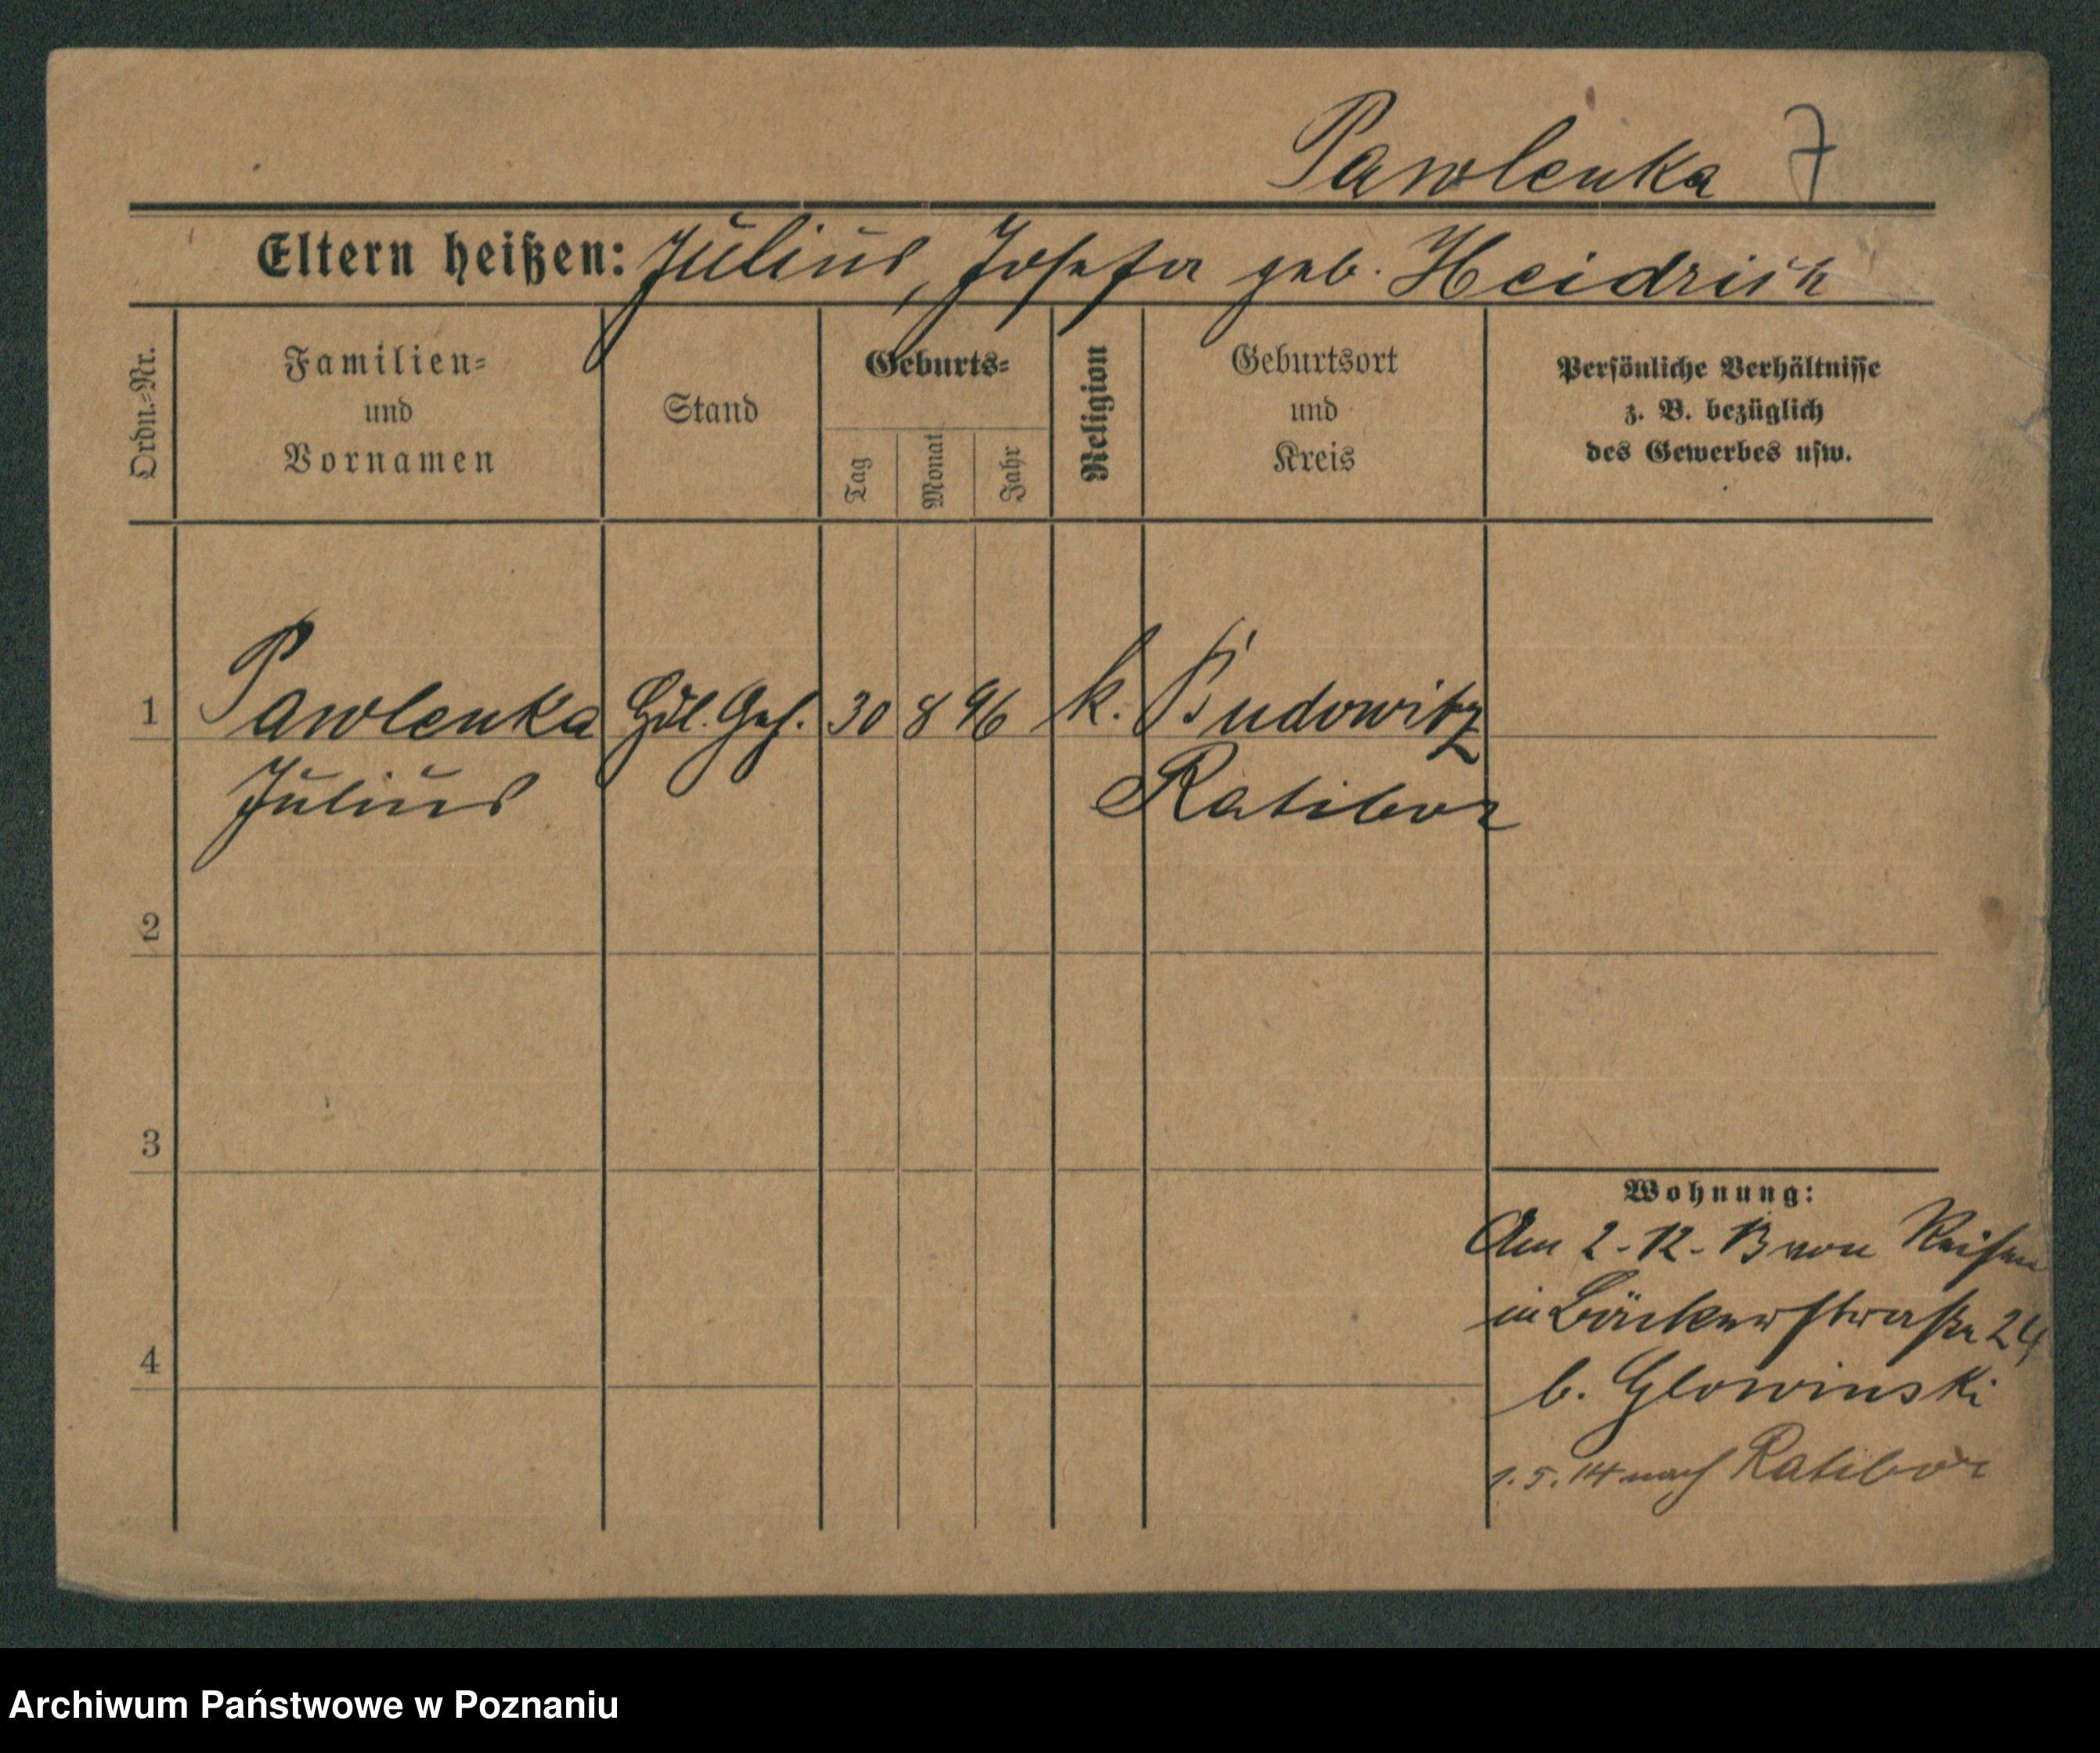 Pawlenka 7
Eltern heißen: Julius, Josefa geb. Heidrich
Ordn.=Nr.
Familien=
und
Vornamen
Stand
Geburts=
Tag
Monat
Jahr
Religion
Geburtsort
und
Kreis
Persönliche Verhältnisse
z. B. bezüglich
des Gewerbes usw.
1 Pawlenka 30 8 96 k. Budowitz
Julius Ratibor
2
3
4
Wohnung:
Am 2-12-13 von Reisen
in Bäckerstraße 24
b. Glowinski
1.5.14 nach Ratibor
Archiwum Państwowe w Poznaniu